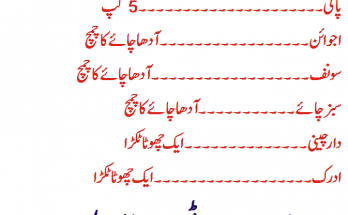 پانی۔۔۔۔۔۔۔۔۔۔۔۔۔۔۔۔۔۔۔۔۔5 کپ
اجوائن۔۔۔۔۔۔۔۔۔۔۔۔۔۔۔۔۔آدھا چائے کا چمچ
سونف۔۔۔۔۔۔۔۔۔۔۔۔۔۔۔۔۔۔آدھا چائے کا چمچ
سبز چائے۔۔۔۔۔۔۔۔۔۔۔آدھا چائے کا چمچ
دار چینی۔۔۔۔۔۔۔۔۔۔۔۔۔۔ایک چھوٹا ٹکڑا
ادرک۔۔۔۔۔۔۔۔۔۔۔۔۔۔۔۔۔۔ایک چھوٹا ٹکڑا